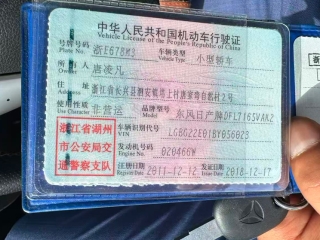 中华人民共和国机动车行驶证
Vehicle License of the People's Republic of China
号牌号码 浙E678M3 车辆类型 小型轿车
Plate No. Vehicle Type
所有人 唐凌凡
Owner
住址 浙江省长兴县泗安镇塔上村唐家湾自然村2号
Address
使用性质 非营运 品牌型号 东风日产牌DFL7165VAK2
Use Character Model
浙江省湖州
市公安局交
通警察支队
车辆识别代号 LGBG22E01BY056023
VIN
发动机号码 020466W
Engine No.
注册日期 2011-12-12 发证日期 2018-12-17
Register Date Issue Date